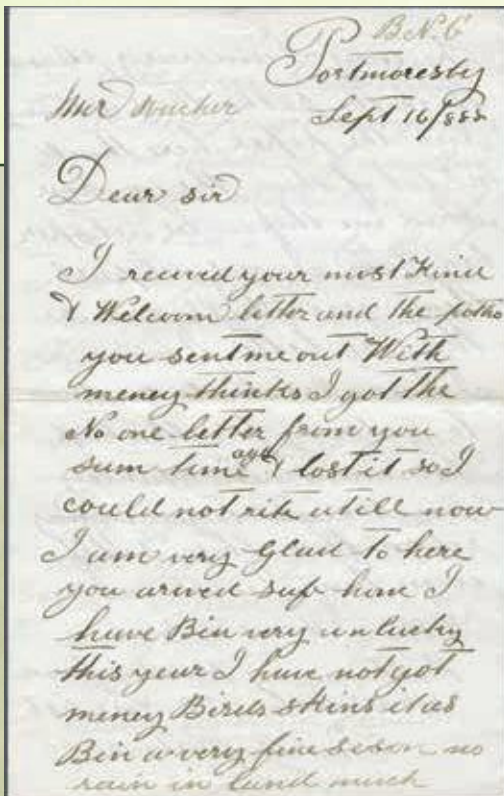 B.N.G
Portmoresby
Sept 16/888
Mr
Dear sir
I receved your most Kind
& Welcom letter and the
you sent me out With
meney thinks I got the
No one letter from you
sum time ago & lost it so I
could not rite utill now
I am very Glad to here
you arived saf home I
have Bin very unlucky
this year I have not got
meney Birds skins it as
Bin a very fine seson no
rain in land much